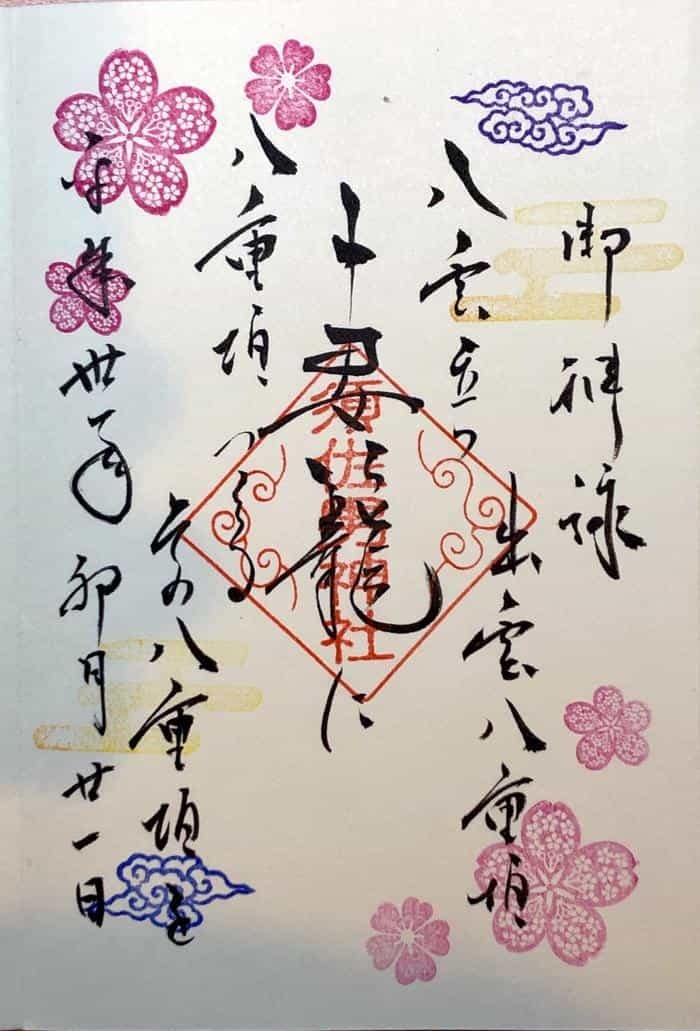 御神詠
八雲立つ
出雲八重垣
妻籠に
須佐男神社
八重垣つくる
その八重垣を
平成卅一年卯月廿一日